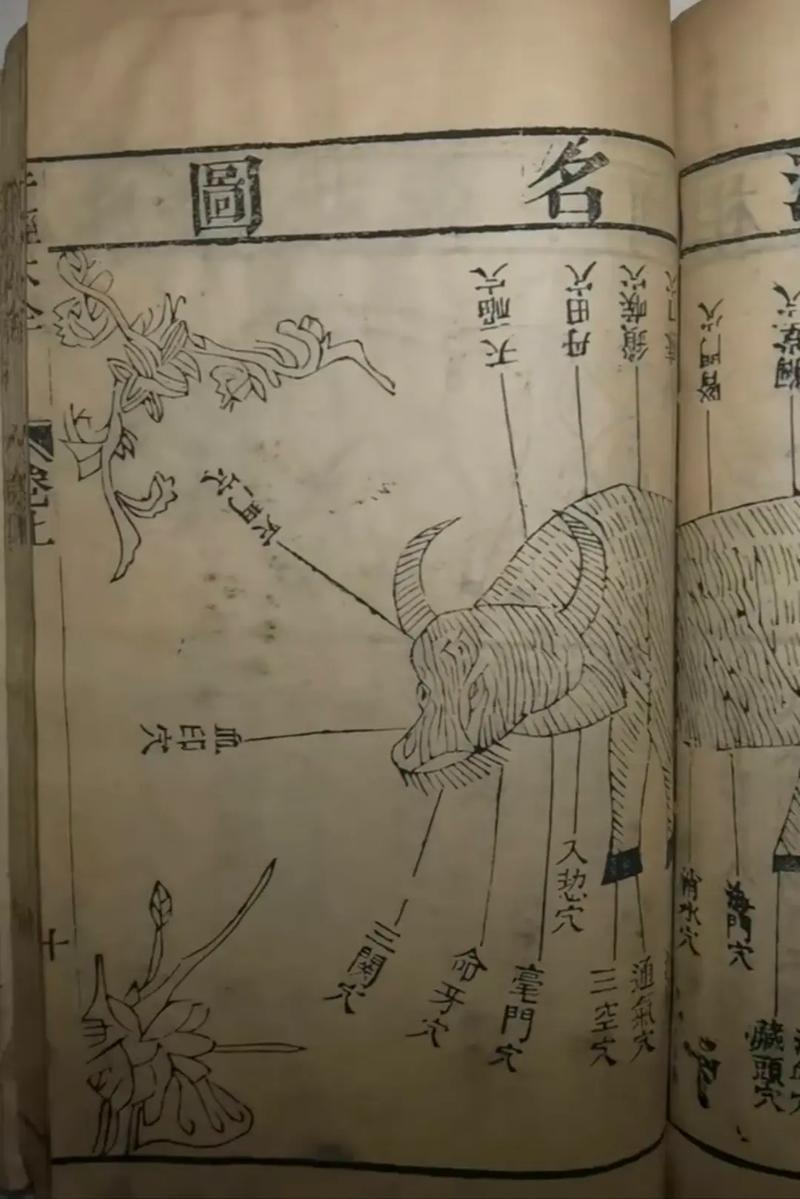 名圖
胸堂穴
鎖喉穴
丹田穴
天福穴
天門穴
血印穴
臟頭穴
海門穴
消水穴
通氣穴
三空穴
毫門穴
命牙穴
三關穴
經大全
卷上
十